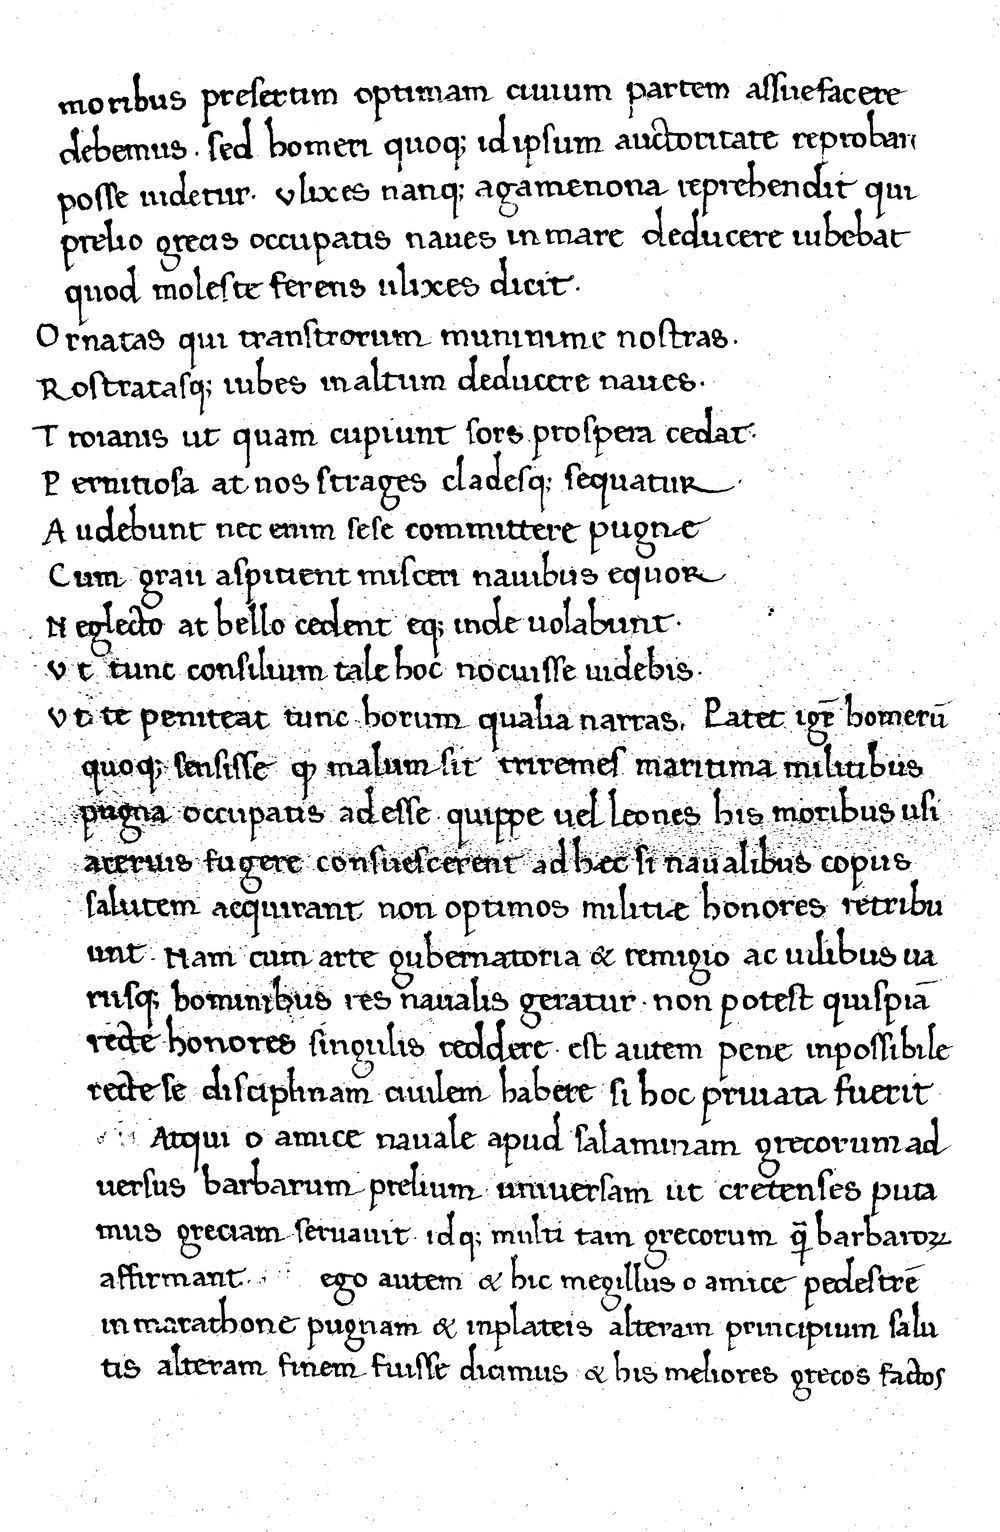 moribus presertim optimam ciuium partem assuefacere
debemus. sed homeri quoq; id ipsum auctoritate reprobari
posse uidetur. vlixes nanq; agamenona reprehendit qui
prelio grecis occupatis naues in mare deducere iubebat
quod moleste ferens ulixes dicit.
Ornatas qui transtrorum munimine nostras.
Rostratasq; iubes in altum deducere naues.
Troianis ut quam cupiunt sors prospera cedat.
Pernitiosa at nos strages cladesq; sequatur.
Audebunt nec enim sese committere pugnæ
Cum graii aspitient misceri nauibus equor
Neglecto at bello cedent eq; inde uolabunt.
vt tunc consilium tale hoc nocuisse uidebis.
vt te peniteat tunc horum qualia narras. Patet igr̄ homerū
quoq; sensisse ꝙ malum sit triremes maritima militibus
pugna occupatis adesse quippe uel leones his moribus usi
ceruis fugere consuescerent ad hæc si naualibus copus
salutem acquirant non optimos militiæ honores retribu
unt. Nam cum arte gubernatoria & remigio ac uilibus ua
riisq; hominibus res naualis geratur. non potest quispiā
recte honores singulis reddere. est autem pene inpossibile
recte se disciplinam ciuilem habere si hoc priuata fuerit
Atqui o amice nauale apud salaminam grecorum ad
uersus barbarum prelium uniuersam ut cretenses puta
mus greciam seruauit. idq; multi tam grecorum q̄ barbaroꝝ
affirmant. ego autem & hic megillus o amice pedestrē
in marathone pugnam & inplateis alteram principium salu
tis alteram finem fuisse dicimus & his meliores grecos factos